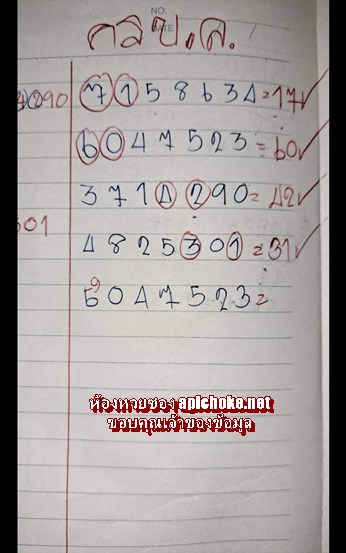 NO.
DATE
คลิป.ศ.
290 7 1 5 8 6 3 4 = 17 ✓
6 0 4 7 5 2 3 = 60 ✓
3 7 1 4 2 9 0 = 42 ✓
501
4 8 2 5 3 0 1 = 31 ✓
9
5 0 4 7 5 2 3 =
ห้องหวยซอง apichoke.net
ขอบคุณเจ้าของข้อมูล